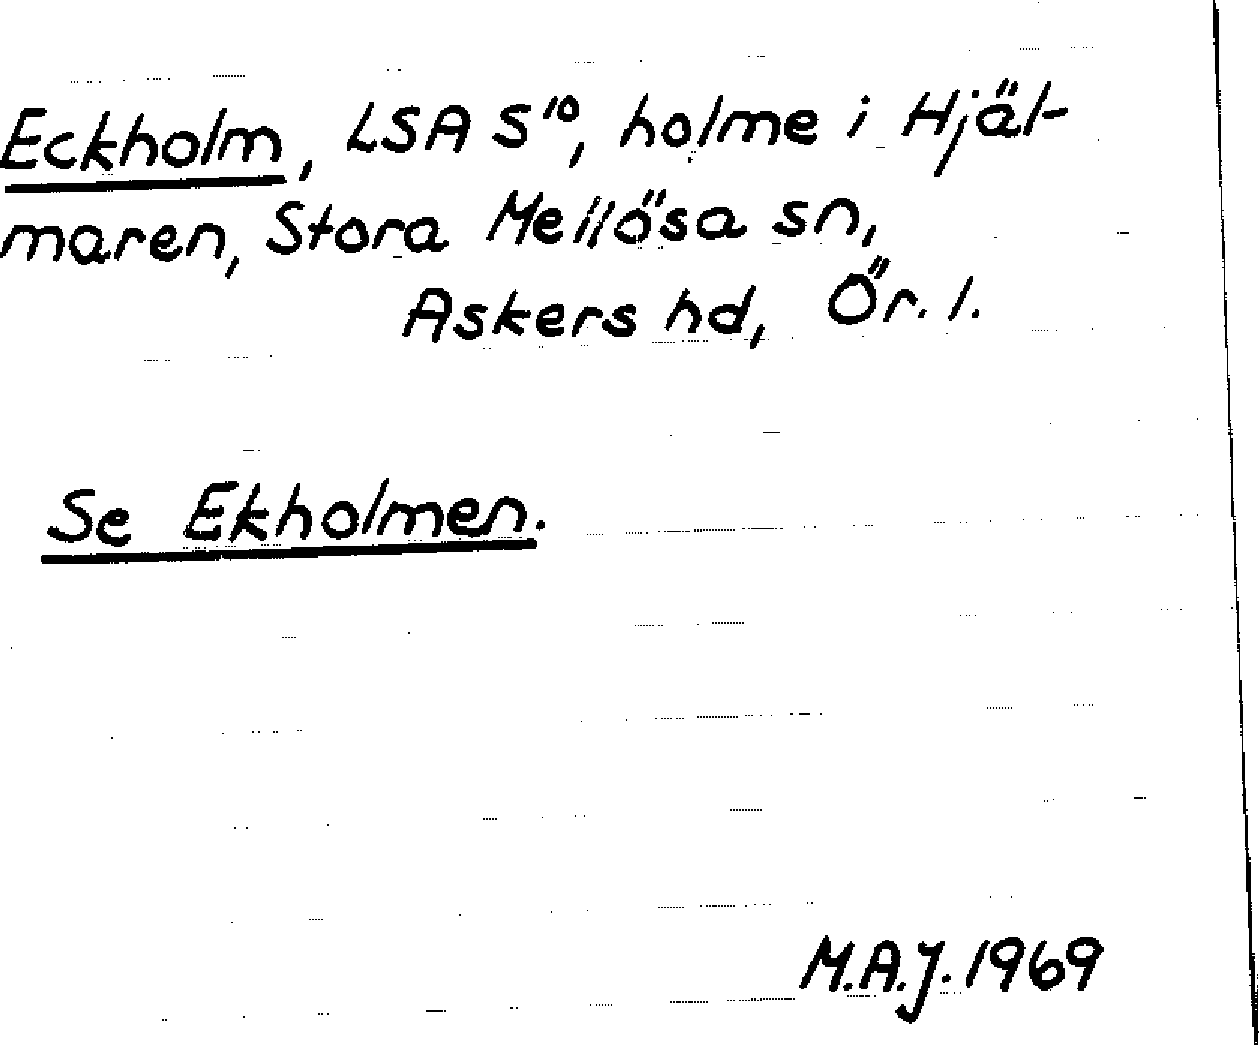 Eckholm, LSA S¹⁰, holme i Hjäl-
maren, Stora Mellösa sn,
Askers hd, Ör. l.
Se Ekholmen.
M.A.J. 1969